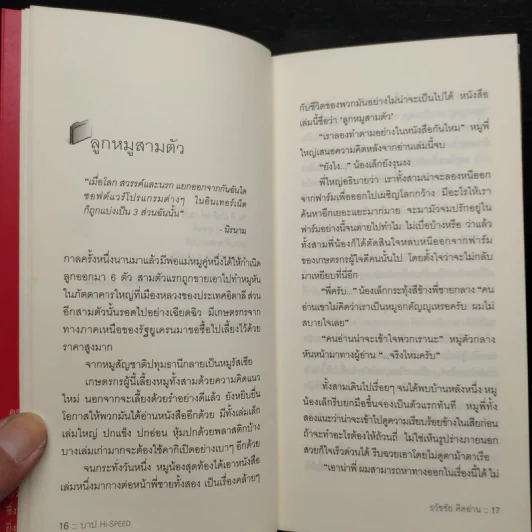 ลูกหมูสามตัว
"เมื่อโลก สวรรค์และนรก แยกออกจากกันฉันใด
ซอฟต์แวร์โปรแกรมต่างๆ ในอินเทอร์เน็ต
ก็ถูกแบ่งเป็น 3 ส่วนฉันนั้น"
- นิรนาม
กาลครั้งหนึ่งนานมาแล้วมีพ่อแม่หมูคู่หนึ่งได้ให้กำเนิด
ลูกออกมา 6 ตัว สามตัวแรกถูกขายเอาไปทำหมูหัน
ในภัตตาคารใหญ่ที่เมืองหลวงของประเทศอิตาลี ส่วน
อีกสามตัวนั้นรอดไปอย่างเฉียดฉิว มีเกษตรกรจาก
ทางภาคเหนือของรัฐยูเครนมาขอซื้อไปเลี้ยงไว้ด้วย
ราคาสูงมาก
จากหมูสัญชาติปทุมธานีกลายเป็นหมูรัสเซีย
เกษตรกรผู้นี้เลี้ยงหมูทั้งสามด้วยความคิดแนว
ใหม่ นอกจากจะเลี้ยงด้วยรำอย่างดีแล้ว ยังหยิบยื่น
โอกาสให้พวกมันได้อ่านหนังสืออีกด้วย มีทั้งเล่มเล็ก
เล่มใหญ่ ปกแข็ง ปกอ่อน หุ้มปกด้วยพลาสติกบ้าง
บางเล่มเก่ามากจะต้องใช้คากีเปิดอย่างเบาๆ อีกด้วย
จนกระทั่งวันหนึ่ง หมูน้องสุดท้องได้เอาหนังสือ
เล่มหนึ่งมากางต่อหน้าพี่ชายทั้งสอง เป็นเรื่องคล้ายๆ
16 :: บาป Hi-SPEED
กับชีวิตของพวกมันอย่างไม่น่าจะเป็นไปได้ หนังสือ
เล่มนี้ชื่อว่า 'ลูกหมูสามตัว'
"เราลองทำตามอย่างในหนังสือกันไหม" หมูพี่
ใหญ่เสนอความคิดหลังจากอ่านเล่มนี้จบ
"ยังไง..." น้องเล็กยังงุนงง
พี่ใหญ่อธิบายว่า เราทั้งสามน่าจะลองหนีออก
จากฟาร์มเพื่อออกไปเผชิญโลกกว้าง มีอะไรให้เรา
ค้นหาอีกเยอะแยะมากมาย จะมามัวจมปรักอยู่ใน
ฟาร์มอย่างนี้จนตายไปทำไม ไม่เบื่อบ้างหรือ ว่าแล้ว
ทั้งสามพี่น้องก็ได้ตัดสินใจหลบหนีออกจากฟาร์ม
ของเกษตรกรผู้ใจดีคนนั้นไป โดยตั้งใจว่าจะไม่กลับ
มาเหยียบที่นี่อีก
"พี่ครับ..." น้องเล็กกระทุ้งสีข้างพี่ชายกลาง "คน
อ่านเขาไม่คิดว่าเราเป็นหมูอกตัญญูเหรอครับ ผมไม่
สบายใจเลย"
"คนอ่านน่าจะเข้าใจพวกเรานะ" หมูตัวกลาง
หันหน้ามาทางผู้อ่าน "...จริงไหมครับ"
ทั้งสามเดินไปเรื่อยๆ จนได้พบบ้านหลังหนึ่ง หมู
น้องเล็กรีบยกมือขึ้นจองเป็นตัวแรกทันที หมูพี่ทั้ง
สองแนะว่าน่าจะเข้าไปดูความเรียบร้อยข้างในเสียก่อน
ถ้าจะทำอะไรต้องให้ถ้วนถี่ ไม่ใช่เห็นรูปร่างภายนอก
สวยก็ใจเร็วด่วนได้ รีบฉวยเอาโดยไม่ดูตาม้าตาเรือ
"เอาน่าพี่ ผมสามารถหาทางออกในเรื่องนี้ได้ ไม่
ธวัชชัย คิดอ่าน :: 17